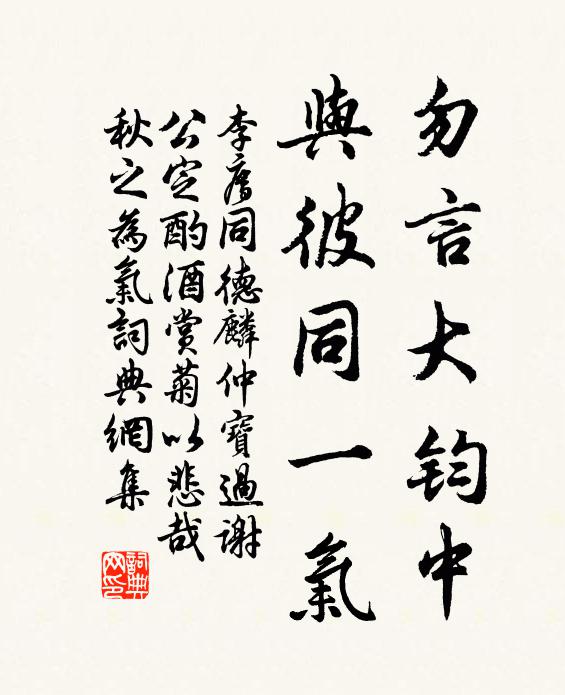 勿言大鈞中
與彼同一氣
李廌同德麟仲寶過謝
公定酌酒賞菊以悲哉
秋之為氣詞典網集
詞典
网印